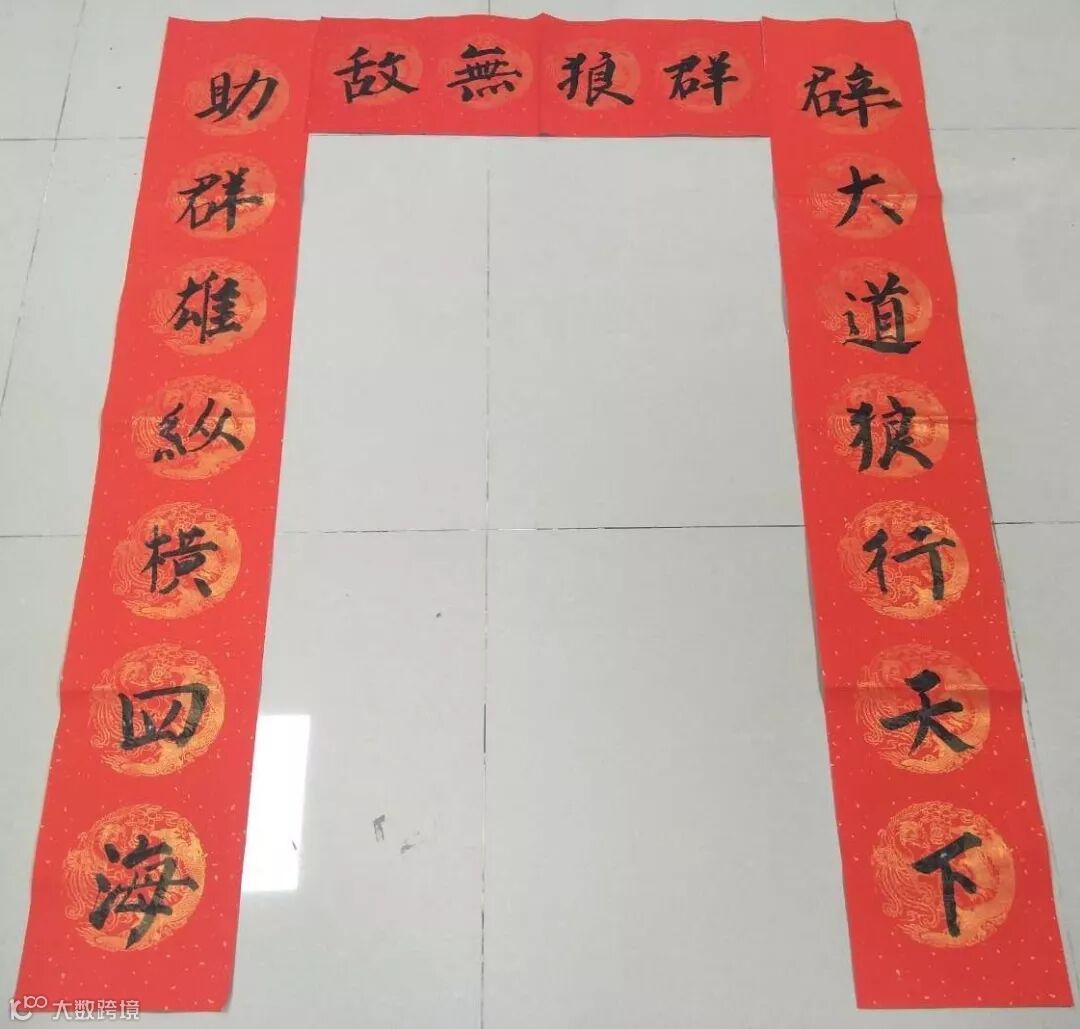 辟大道狼行天下
助群雄纵横四海
群狼無敌
大数跨境